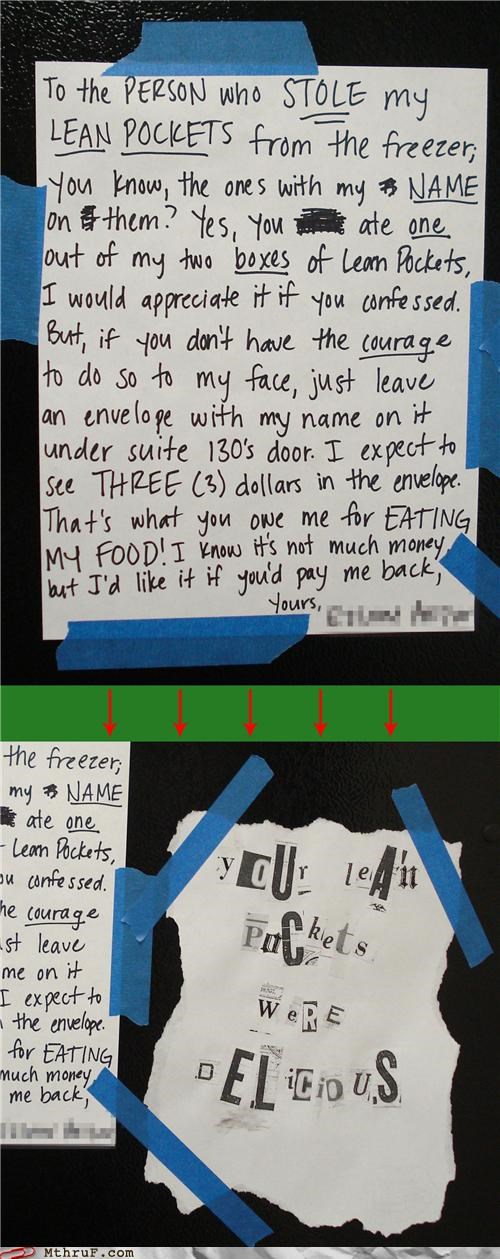 To the PERSON who STOLE my
LEAN POCKETS from the freezer;
you know, the ones with my NAME
on them? Yes, you ate one
out of my two boxes of Lean Pockets,
I would appreciate it if you confessed.
But, if you don't have the courage
to do so to my face, just leave
an envelope with my name on it
under suite 130's door. I expect to
see THREE (3) dollars in the envelope.
That's what you owe me for EATING
MY FOOD! I know it's not much money,
but I'd like it if you'd pay me back,
Yours,
the freezer;
my NAME
ate one
Lean Pockets,
ou confessed.
he courage
st leave
me on it
I expect to
the envelope.
for EATING
much money
me back,
yOUr leAn
PoCkets
WeRE
DELiciOUS
MthruF.com